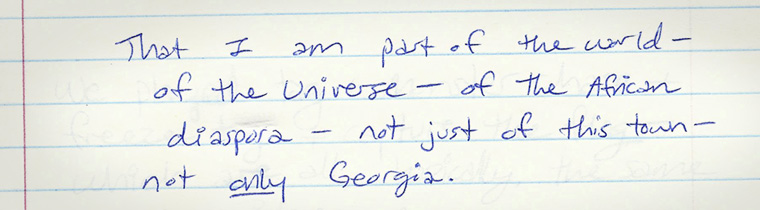 That I am part of the world —
of the Universe — of the African
diaspora — not just of this town —
not only Georgia.